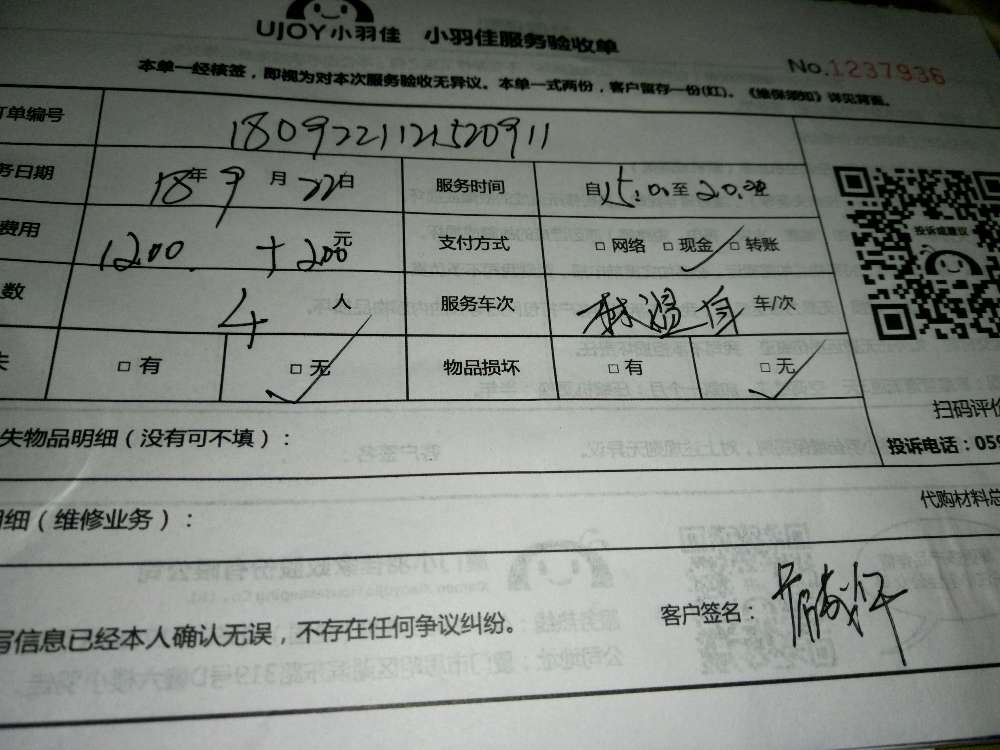 UJOY小羽佳 小羽佳服务验收单
No.1237936
本单一经核签，即视为对本次服务验收无异议。本单一式两份，客户留存一份(红)。《维保须知》详见背面。
订单编号 1809221121520911
务日期 18年9月22日 服务时间 自15:00至20:00
费用 1200 + 200元 支付方式 □ 网络 □ 现金 □ 转账
人数 4人 服务车次 车/次
失 □ 有 □ 无 物品损坏 □ 有 □ 无
投诉或建议
扫码评价
失物品明细（没有可不填）：
投诉电话：059
代购材料总
明细（维修业务）：
写信息已经本人确认无误，不存在任何争议纠纷。
客户签名：